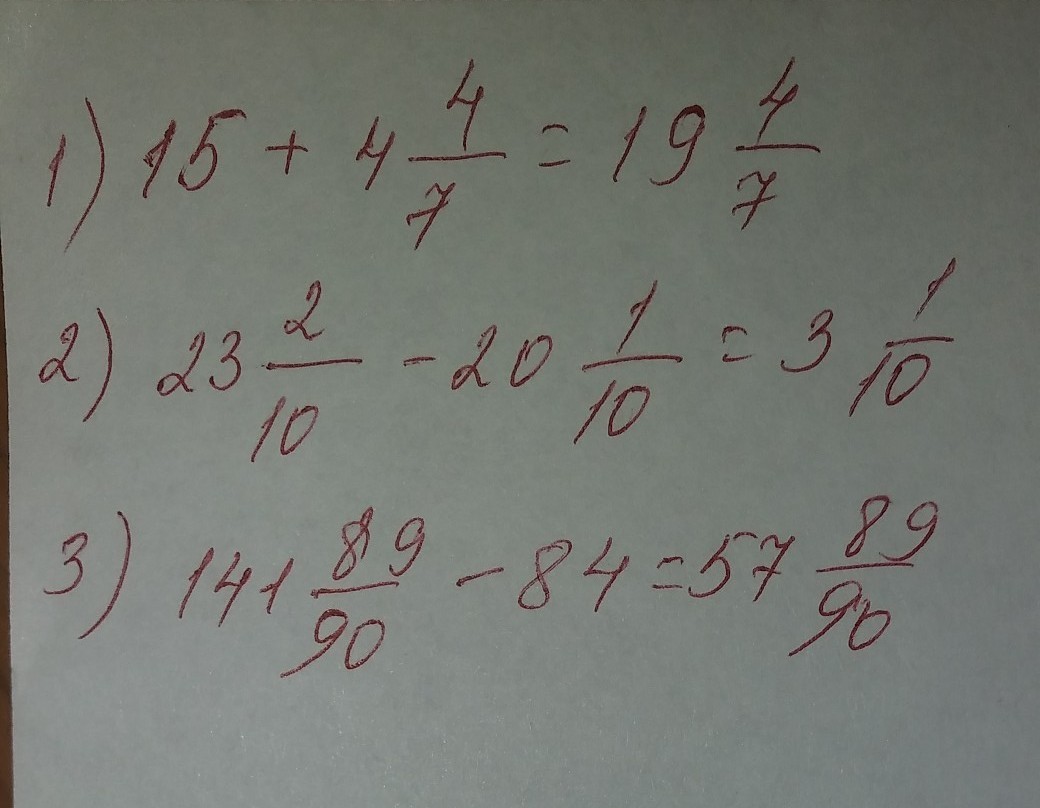 1) 15 + 4 4/7 = 19 4/7
2) 23 2/10 - 20 1/10 = 3 1/10
3) 141 89/90 - 84 = 57 89/90